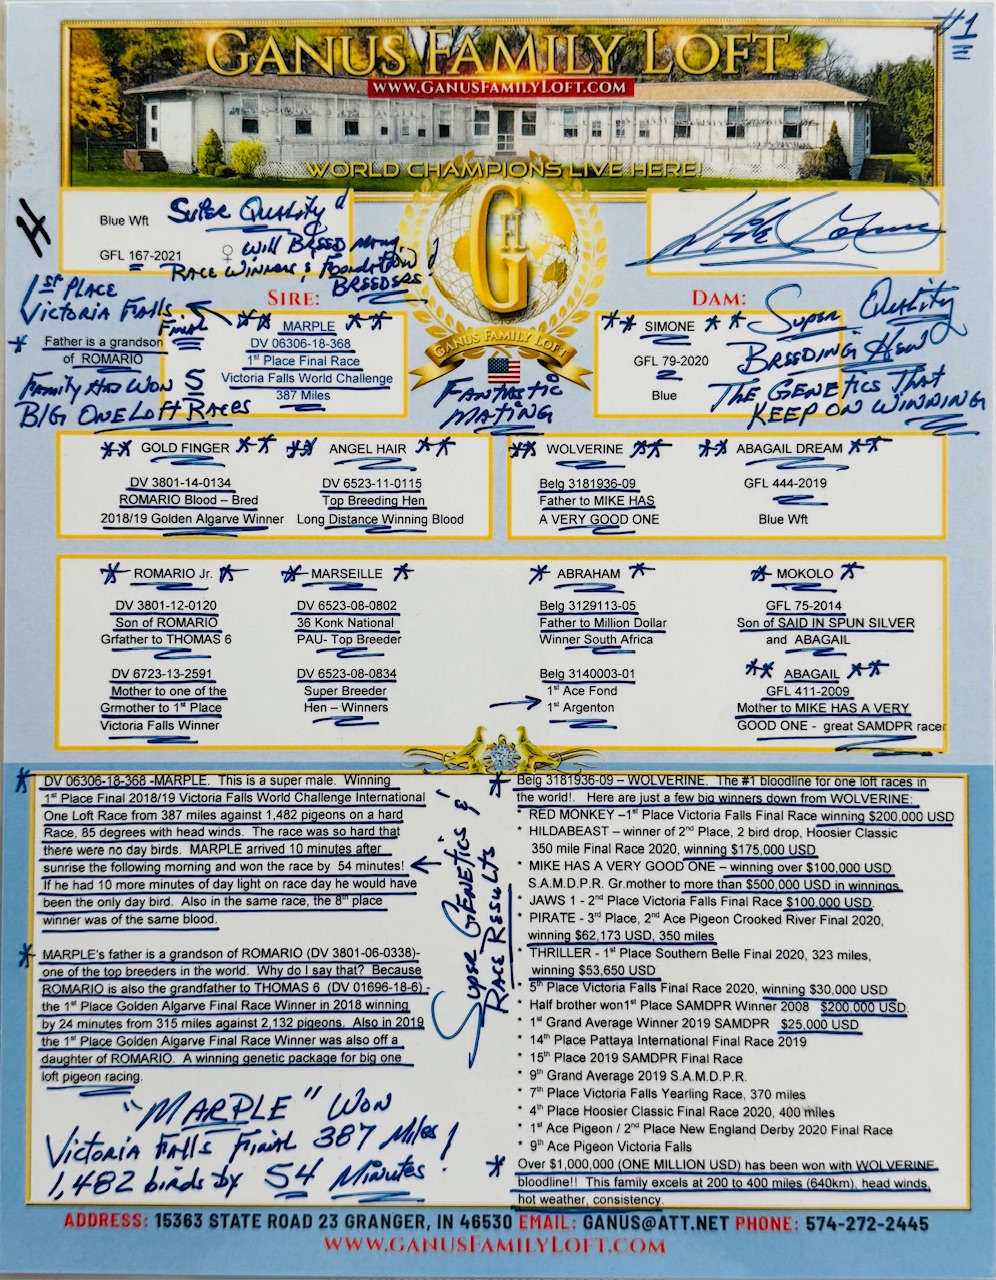 #1
GANUS FAMILY LOFT
WWW.GANUSFAMILYLOFT.COM
WORLD CHAMPIONS LIVE HERE!
GHL
GANUS FAMILY LOFT
H
Blue Wft
GFL 167-2021 ♀
Super Quality!
Will Breed Many
Race Winners & Foundation
Breeders!
1st Place
Victoria Falls
Final
* Father is a grandson
of ROMARIO
Family Has Won 5
Big One Loft Races
SIRE:
** MARPLE **
DV 06306-18-368
1st Place Final Race
Victoria Falls World Challenge
387 Miles
Fantastic
Mating
DAM:
** SIMONE **
GFL 79-2020
Blue
Super Quality
Breeding Hen!
The Genetics That
Keep on Winning
** GOLD FINGER **
DV 3801-14-0134
ROMARIO Blood – Bred
2018/19 Golden Algarve Winner
** ANGEL HAIR **
DV 6523-11-0115
Top Breeding Hen
Long Distance Winning Blood
** WOLVERINE **
Belg 3181936-09
Father to MIKE HAS
A VERY GOOD ONE
** ABAGAIL DREAM **
GFL 444-2019
Blue Wft
* ROMARIO Jr. *
DV 3801-12-0120
Son of ROMARIO
Grfather to THOMAS 6
DV 6723-13-2591
Mother to one of the
Grmother to 1st Place
Victoria Falls Winner
* MARSEILLE *
DV 6523-08-0802
36 Konk National
PAU- Top Breeder
DV 6523-08-0834
Super Breeder
Hen – Winners
* ABRAHAM *
Belg 3129113-05
Father to Million Dollar
Winner South Africa
Belg 3140003-01
1st Ace Fond
1st Argenton
* MOKOLO *
GFL 75-2014
Son of SAID IN SPUN SILVER
and ABAGAIL
** ABAGAIL **
GFL 411-2009
Mother to MIKE HAS A VERY
GOOD ONE - great SAMDPR racer
* DV 06306-18-368 -MARPLE. This is a super male. Winning
1st Place Final 2018/19 Victoria Falls World Challenge International
One Loft Race from 387 miles against 1,482 pigeons on a hard
Race, 85 degrees with head winds. The race was so hard that
there were no day birds. MARPLE arrived 10 minutes after
sunrise the following morning and won the race by 54 minutes!
If he had 10 more minutes of day light on race day he would have
been the only day bird. Also in the same race, the 8th place
winner was of the same blood.
* MARPLE's father is a grandson of ROMARIO (DV 3801-06-0338)-
one of the top breeders in the world. Why do I say that? Because
ROMARIO is also the grandfather to THOMAS 6 (DV 01696-18-6) -
the 1st Place Golden Algarve Final Race Winner in 2018 winning
by 24 minutes from 315 miles against 2,132 pigeons. Also in 2019
the 1st Place Golden Algarve Final Race Winner was also off a
daughter of ROMARIO. A winning genetic package for big one
loft pigeon racing.
"MARPLE" Won
Victoria Falls Final 387 Miles!
1,482 birds by 54 Minutes!
Super Genetics &
Race Results!
* Belg 3181936-09 – WOLVERINE. The #1 bloodline for one loft races in
the world!. Here are just a few big winners down from WOLVERINE:
* RED MONKEY –1st Place Victoria Falls Final Race winning $200,000 USD
* HILDABEAST – winner of 2nd Place, 2 bird drop, Hoosier Classic
350 mile Final Race 2020, winning $175,000 USD
* MIKE HAS A VERY GOOD ONE – winning over $100,000 USD
S.A.M.D.P.R. Gr.mother to more than $500,000 USD in winnings
* JAWS 1 - 2nd Place Victoria Falls Final Race $100,000 USD
* PIRATE - 3rd Place, 2nd Ace Pigeon Crooked River Final 2020,
winning $62,173 USD, 350 miles
* THRILLER - 1st Place Southern Belle Final 2020, 323 miles,
winning $53,650 USD
* 5th Place Victoria Falls Final Race 2020, winning $30,000 USD
* Half brother won1st Place SAMDPR Winner 2008 $200,000 USD.
* 1st Grand Average Winner 2019 SAMDPR $25,000 USD
* 14th Place Pattaya International Final Race 2019
* 15th Place 2019 SAMDPR Final Race
* 9th Grand Average 2019 S.A.M.D.P.R.
* 7th Place Victoria Falls Yearling Race, 370 miles
* 4th Place Hoosier Classic Final Race 2020, 400 miles
* 1st Ace Pigeon / 2nd Place New England Derby 2020 Final Race
* 9th Ace Pigeon Victoria Falls
* Over $1,000,000 (ONE MILLION USD) has been won with WOLVERINE
bloodline!! This family excels at 200 to 400 miles (640km), head winds,
hot weather, consistency.
ADDRESS: 15363 STATE ROAD 23 GRANGER, IN 46530 EMAIL: GANUS@ATT.NET PHONE: 574-272-2445
WWW.GANUSFAMILYLOFT.COM